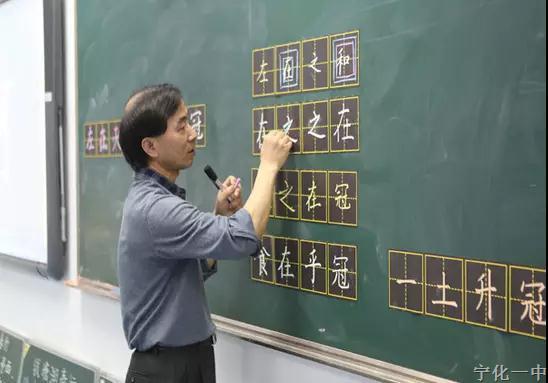 左在之和
在之之在
左在 冠
之在冠
食在乎冠
一土升冠
宁化一中